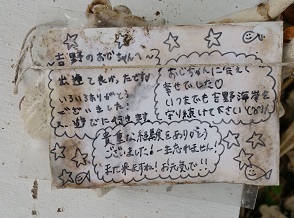 ~吉野のおじちゃんへ~
出逢えて良かったです
いろいろありがとう
ございました!
おじちゃんに会えて
幸せでした♡
いつまでも吉野海岸を
守り続けて下さい
貴重な経験をありがとう
ございました!一生忘れません!
また来ますね!お元気で!!